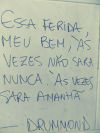 ESSA FERIDA
MEU BEM, ÀS
VEZES NÃO SARA
NUNCA ÀS VEZES
SARA AMANHÃ
— DRUMMOND